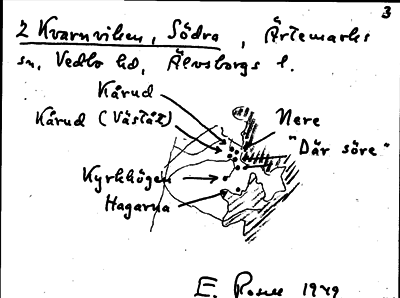 3
2 Kvarnviken, Södra, Ärtemarks
sn, Vedbo hd, Älvsborgs l.
Kårud
Kårud (Väståt)
Nere
"Där söre"
Kyrkhögen
Hagarna
E. 1949